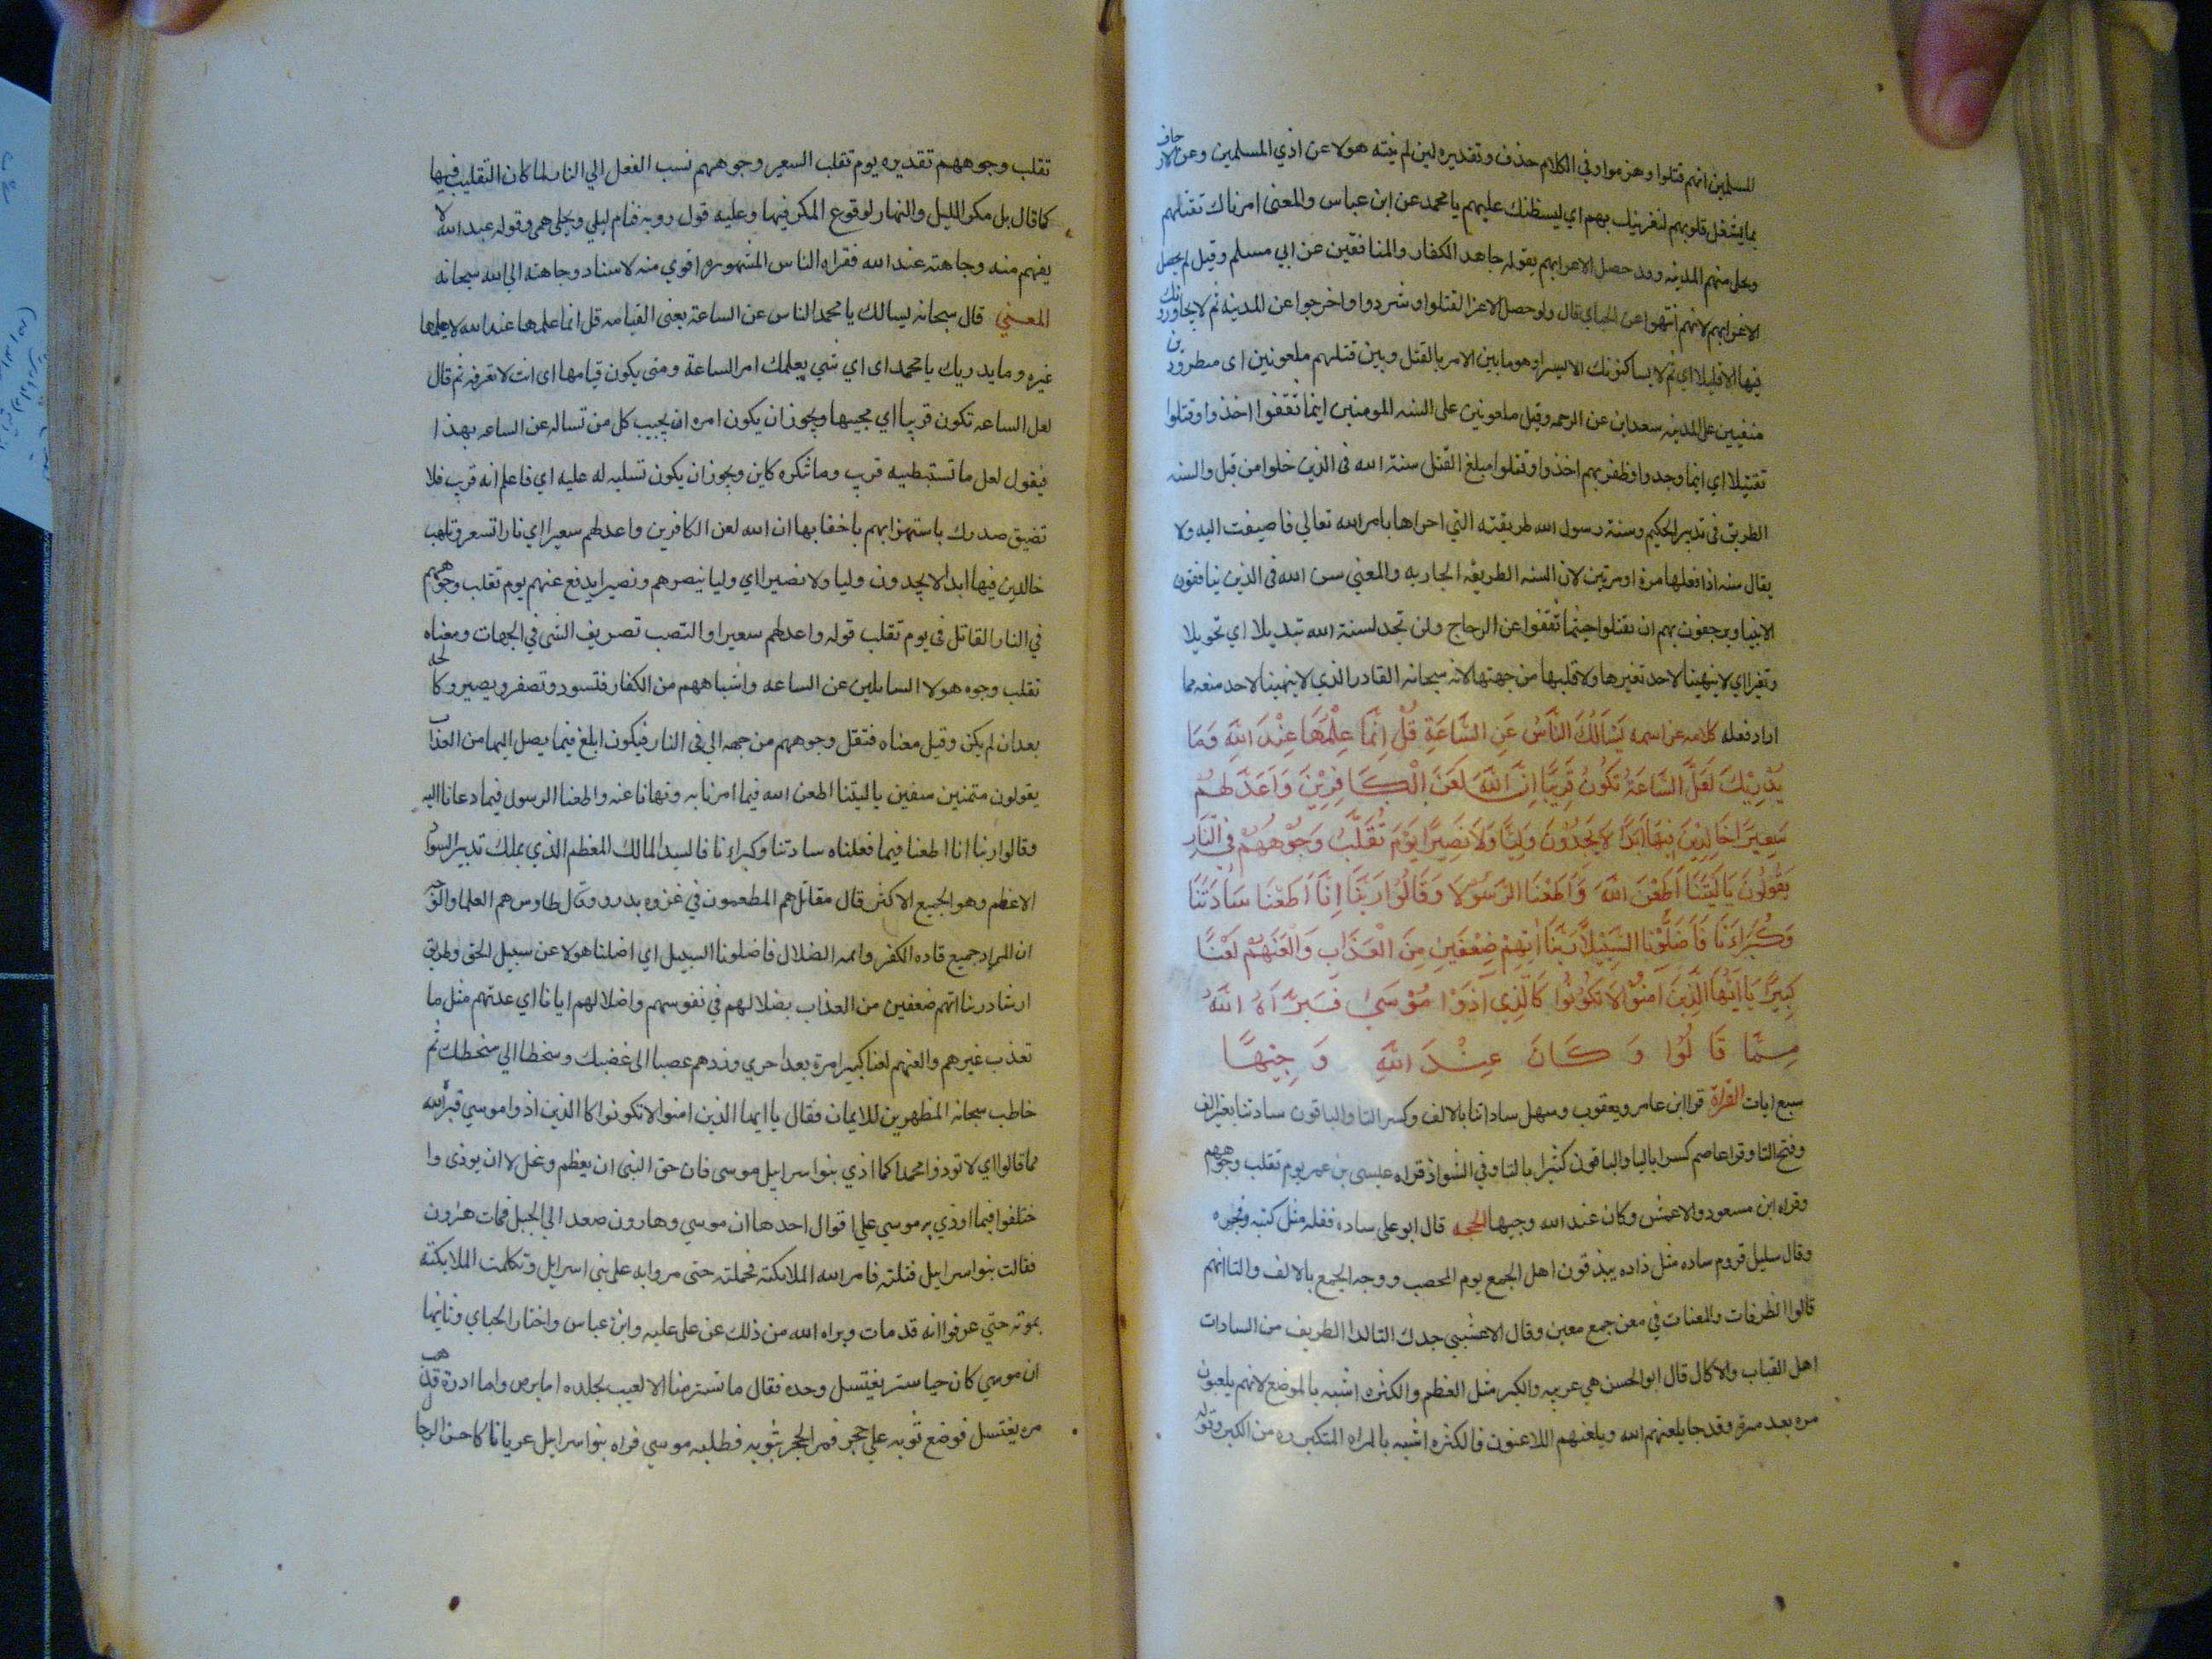 للمسلمين انهم قتلوا وهزموا وفي الكلام حذف وتقديره لين لم ينته هولا عن اذي المسلمين وعن الارجاف
بما يشغل قلوبهم لنغرينك بهم اي ليسلطنك عليهم يا محمد عن ابن عباس والمعنى امرناك تقتلهم
وتخلى منهم المدينه وود حصل الاغرا بهم بقوله جاهد الكفار والمنافقين عن ابي مسلم وقيل لم يحصل
الاغرا بهم لانهم انتهوا عن الجباي قال ولو حصل الاغرا لقتلوا وشردوا واخرجوا عن المدينه ثم لا يجاورونك
فيها الا قليلا اي ثم لا يساكنونك الا يسيرا وهو ما بين الامر بالقتل وبين قتلهم ملعونين اى مطرودين
منفيين عن المدينه سعدابن عن الرحمه وقيل ملعونين على السنه المومنين اينما ثقفوا اخذوا وقتلوا
تقتيلا اي اينما وجدوا وظفر بهم اخذوا وقتلوا مبلغ القتل سنة الله فى الذين خلوا من قبل والسنه
الطريق فى تدبير الحكيم وسنة رسول الله طريقته التي اجراها بامر الله تعالي فاضيفت اليه ولا
يقال سنه اذا فعلها مرة او مرتين لان السنه الطريقه الجاريه والمعني سن الله فى الذين ينافقون
الانبيا ويرجفون بهم ان يقتلوا حيثما ثقفوا عن الزجاج ولن تجد لسنة الله تبديلا اي تحويلا
وتغيرا اي لا يتهيا لاحد تغيرها ولا قلبها من جهتها لانه سبحانه القادر الذي لا يتهيا لاحد منعه مما
اراد فعله كلامه عز اسمه يَسْاَلُكَ النَّاسُ عَنِ السَّاعَةِ قُلْ اِنَّمَا عِلْمُهَا عِنْدَ اللّٰهِ وَمَا
يُدْرِيْكَ لَعَلَّ السَّاعَةَ تَكُوْنُ قَرِيْبًا اِنَّ اللّٰهَ لَعَنَ الْكَافِرِيْنَ وَاَعَدَّ لَهُمْ
سَعِيرًا خَالِدِيْنَ فِيْهَا اَبَدًا لَا يَجِدُوْنَ وَلِيًّا وَلَا نَصِيْرًا يَوْمَ تُقَلَّبُ وُجُوْهُهُمْ فِي النَّارِ
يَقُوْلُوْنَ يَا لَيْتَنَا اَطَعْنَ اللّٰهَ وَاَطَعْنَا الرَّسُوْلَا وَقَالُوْا رَبَّنَا اِنَّا اَطَعْنَا سَادَتَنَا
وَكُبَرَاءَنَا فَاَضَلُّوْنَا السَّبِيْلَا رَبَّنَا اٰتِهِمْ ضِعْفَيْنِ مِنَ الْعَذَابِ وَالْعَنْهُمْ لَعْنًا
كَبِيْرًا يَا اَيُّهَا الَّذِيْنَ اٰمَنُوْا لَا تَكُوْنُوْا كَالَّذِي اٰذَوْا مُوْسَىٰ فَبَرَّاَهُ اللّٰهُ
مِمَّا قَالُوْا وَكَانَ عِنْدَ اللّٰهِ وَجِيْهًا
سبع ايات القراة قرا ابن عامر ويعقوب وسهل ساداتنا بالالف وكسر التا والباقون سادتنا بغير الف
وفتح التا وقرا عاصم كبيرا باليا والباقون كثيرا بالثا وفي الشواذ قراه عيسى بن عمر يوم تقلب وجوههم
وقراه ابن مسعود والاعمش وكان عند الله وجيها الحجه قال ابو على ساده فعله مثل كتبه وفجره
وقال سليل قروم ساده مثل ذاده يبذقون اهل الجمع يوم المحصب ووجه الجمع بالالف والتا انهم
قالوا الطرقات والمعنات في معن جمع معين وقال الاعشى جدك التالد الطريف من السادات
اهل القباب والاكال قال ابو الحسن هي عربيه والكبر مثل العظم والكثره اشبه بالموضع لانهم يلعنون
مره بعد مرة وقد جا يلعنهم الله ويلعنهم اللاعنون فالكثره اشبه بالمراه المتكبروه من الكبر وقوله
تقلب وجوههم تقديره يوم تقلب السعير وجوههم نسب الفعل الي النار لما كان التقليب فيها
كما قال بل مكر الليل والنهار لوقوع المكر فيها وعليه قول روبه فنام ليلي وتجلى همى وقوله عبد الله لا
يفهم منه وجاهته عند الله فقراه الناس المشهوره اقوي منه لاسناد وجاهته الى الله سبحانه
المعنى قال سبحانه يسالك يا محمد الناس عن الساعة يعنى القيامه قل انما علمها عند الله لا يعلمها
غيره وما يدريك يا محمد اى اي شي يعلمك امر الساعة ومتى يكون قيامها اى انت لا تعرفه ثم قال
لعل الساعه تكون قريبا اي مجيها ويجوز ان يكون امره ان يجيب كل من تساله عن الساعه بهذا
فيقول لعل ما تستبطيه قريب وما تنكره كاين ويجوز ان يكون تسليه له عليه اي فاعلم انه قريب فلا
تضيق صدرك باستهزابهم باخفابها ان الله لعن الكافرين واعد لهم سعيرا اي نارا تسعر وتلهب
خالدين فيها ابدا لا يجدون وليا ولا نصيرا اي وليا ينصرهم ونصيرا يدفع عنهم يوم تقلب وجوههم
في النار القاتل فى يوم تقلب قوله واعد لهم سعيرا والتصب تصريف الشى في الجهات ومعناه
تقلب وجوه هولا السايلين عن الساعه واشباههم من الكفار فتسود وتصفر ويصير وكالحه
بعد ان لم يكن وقيل معناه فتقل وجوههم من جهه الى فى النار فيكون ابلغ فيما يصل اليها من العذاب
يقولون متمنين يا ليتنا اطعن الله فيما امرنا به ونهانا عنه واطعنا الرسول فيما دعانا اليه
وقالوا ربنا انا اطعنا فيما فعلناه سادتنا وكبراءنا فالسيد المالك المعظم الذي يملك تدبير السواد
الاعظم وهو الجميع الاكثر قال مقاتل هم المطعمون في غزوه بدر وقال طاوس هم العلما والوجه
ان المراد جميع قاده الكفر وايمه الضلال فاضلونا السبيل اي اضلنا هولا عن سبيل الحق وطريق
ارشاد ربنا اتهم ضعفين من العذاب بضلالهم في نفوسهم واضلالهم ايانا اي عذبهم مثل ما
تعذب غيرهم والعنهم لعنا كبيرا مرة بعد اخري وزدهم غضبا الى غضبك وسخطا الي سخطك ثم
خاطب سبحانه المظهرين للايمان فقال يا ايها الذين امنوا لا تكونوا كا الذين اذوا موسي فبراه الله
مما قالوا اي لا توذوا محمدا كما اذي بنوا سراييل موسى فان حق النبى ان يعظم ويجل لا ان يوذى وا
ختلفوا فيما اوذي به موسي علي اقوال احدها ان موسي وهارون صعد الى الجبل فمات هرون
فقالت بنوا سراييل قتلته فامر الله الملايكته فحملته حتى مروابه على بنى اسراييل وتكلمت الملايكته
بموته حتي عرفوا انه قد مات وبراه الله من ذلك عن على عليه وابن عباس واختار الجباي وثانيها
ان موسي كان حيا ستر يغتسل وحده فقال ما تستر منا الا لعيب بجلده اما برص واما ادرة فذهب
مره يغتسل فوضع ثوبه علي حجر فمر الحجر بثوبه فطلبه موسي فراه بنوا سراييل عريانا كاحسن الرجال